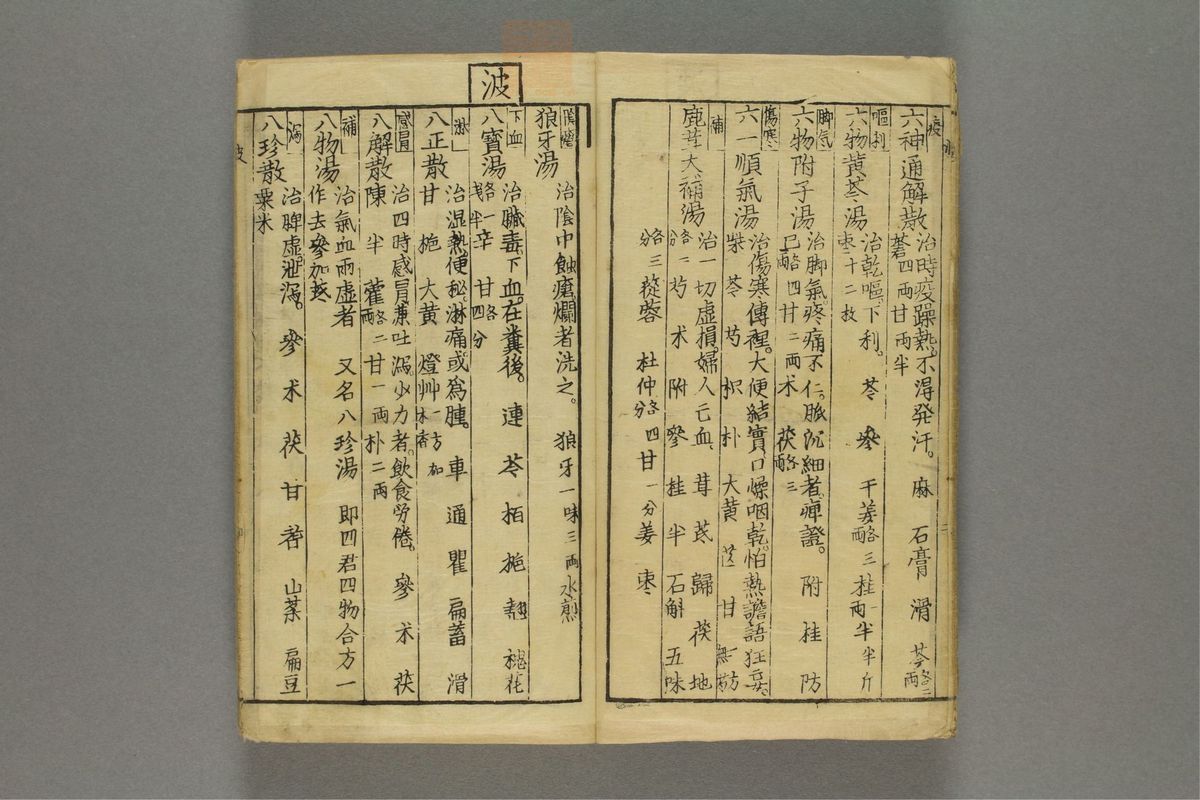 疫
六神通解散
治時疫躁熱。不得発汗。麻 石膏 滑 芩各二両
蒼四両甘両半
嘔利
六物黄芩湯
治乾嘔、下利。芩 參 干姜各三両桂一両半半半斤
枣十二枚
脚気
六物附子湯
治脚氣。疼痛不仁。脈沉細者。痺證。附 桂 防
已各四両甘二両术 茯各三両
傷寒
六一順氣湯
治傷寒傳裡。大便結實、口燥咽乾。怕熱譫語狂妄、
柴 芩 芍 枳 朴 大黄 芒 甘 一方無芍
補
鹿茸大補湯
治一切虚損。婦人亡血、茸 芪 歸 茯 地
各二分芍 术 附 參 桂 半 石斛 五味
各三分蓯蓉 杜仲各四分甘一分姜 枣
波
陰蝕
狼牙湯
治陰中蝕瘡爛者洗之。 狼牙一味三両水煎
下血
八寳湯
治臟毒、下血。在糞後。連 芩 栢 梔 翹 槐花
各一戋半辛 甘各四分
淋
八正散
治湿熱、便秘。淋痛或為腫。車 通 瞿 扁蓄 滑
甘 梔 大黄 燈艸 一方加木香
感冒
八解散
治四時感冒兼吐瀉。少力者。飲食労倦。參 术 茯
陳 半 藿各二両甘一両朴二両
補
八物湯
治氣血両虚者 又名八珍湯 即四君四物合方一
作去參加芪
瀉
八珍散
治脾虚。泄瀉。參 术 茯 甘 芪 山薬 扁豆
粟米